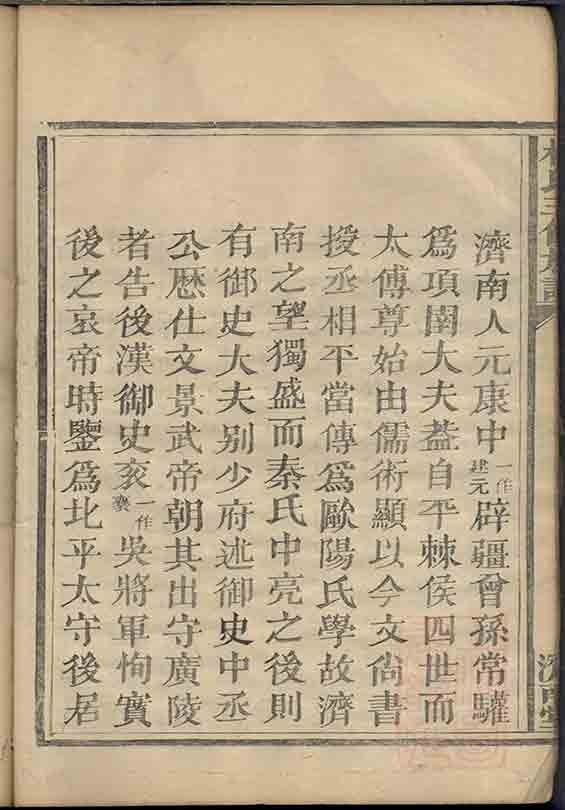 濟南人元康中一作建元辟疆曾孫常驩
爲項園大夫葢自平棘侯四世而
太傅尊始由儒術顯以今文尙書
授丞相平當傳爲歐陽氏學故濟
南之望獨盛而秦氏中亮之後則
有御史大夫别少府述御史中丞
公歷仕文景武帝朝其出守廣陵
者告後漢御史亥一作褒吳將軍恂實
後之哀帝時鑒爲北平太守後居